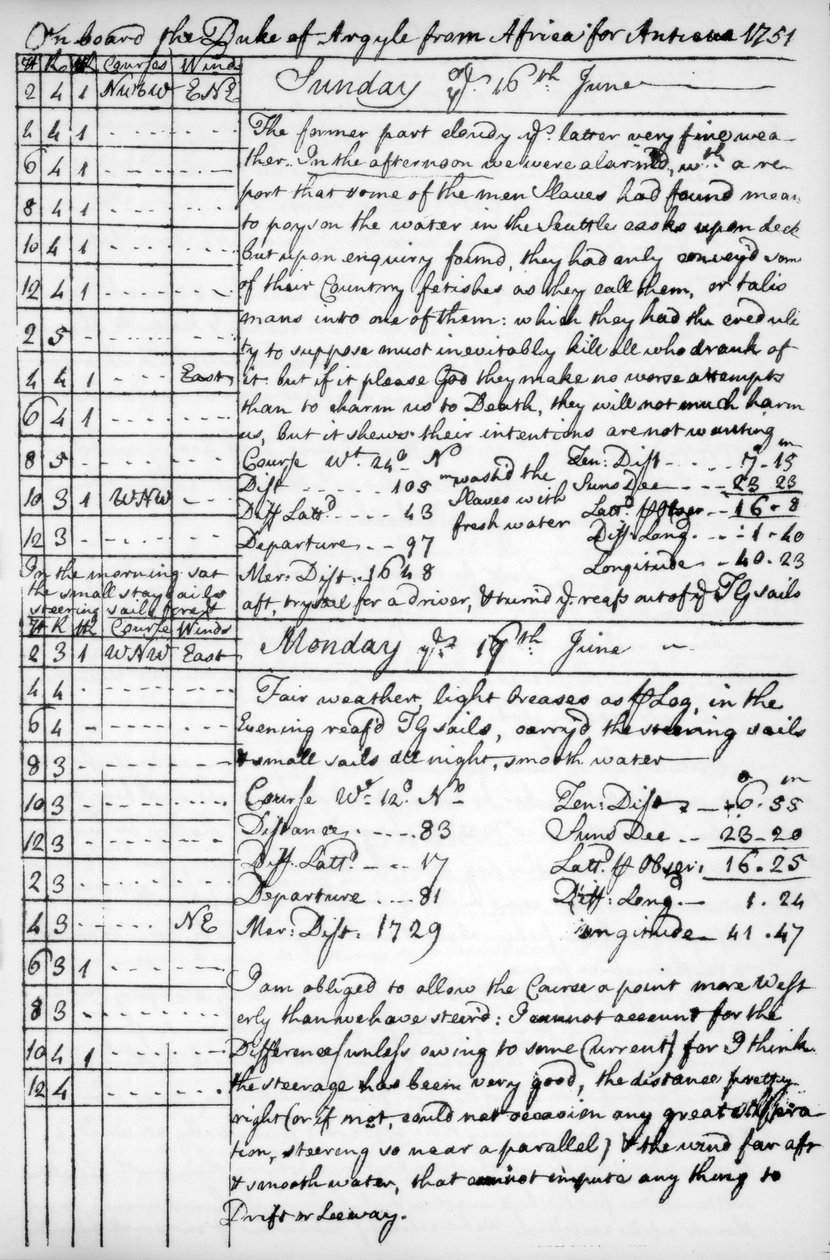 On board the Duke of Argyle from Africa for Antigua 1751
H K HK Courses Winds
2 4 1 NWbW ENE Sunday ye 16th June
4 4 1
6 4 1
8 4 1
10 4 1
12 4 1
2 5
4 4 1 East
6 4 1
8 5
10 3 1 WNW
12 3
In the morning sat
the small stay sails
steering sails forest
The former part cloudy ye. latter very fine wea-
ther. In the afternoon we were alarm'd wth a re-
port that some of the men Slaves had found mean
to poyson the water in the Scuttle casks upon deck
but upon enquiry found, they had only convey'd som
of their Country fetishes as they call them, or talis
mans into one of them: which they had the creduli
ty to suppose must inevitably kill all who drank of
it: but if it please God they make no worse attempts
than to charm us to Death, they will not much harm
us, but it shews their intentions are not wanting
Course Wt. 24° No Zen: Dist 7 - 15
Dist 105 wash'd the Suns Dec 23 23
Diff Lattd 43 Slaves with Lattd ⅌ Obser 16 - 8
Departure 97 fresh water Diff: Long. 1 - 40
Mer: Dist: 1648 Longitude 40 . 23
aft, trysail for a driver, & turn'd ye. reefs out of ye TG sails
H K HK Course Winds
2 3 1 WNW East Monday ye 17th June
4 4
6 4
8 3
10 3
12 3
2 3
4 3 NE
6 3 1
8 3
10 4 1
12 4
Fair weather, light breases as ⅌ Log, in the
Evening reaf'd TG sails, carry'd the steering sails
& small sails all night, smooth water
Course Wt 12° No Zen: Dist 6 . 55
Distance 83 Suns Dec 23 - 20
Diff. Lattd 17 Lattd ⅌ Obser: 16 . 25
Departure 81 Diff: Longd. 1 . 24
Mer: Dist: 1729 Longitude 41 . 47
I am obliged to allow the Course a point more West
erly than we have steer'd: I cannot account for the
Difference (unless owing to some Current) for I think
the steerage has been very good, the distance pretty
right (or if not, could not occasion any great
tion, steering so near a parallel) & the wind far aft
& smooth water, that cannot impute any thing to
Drift or Leeway.